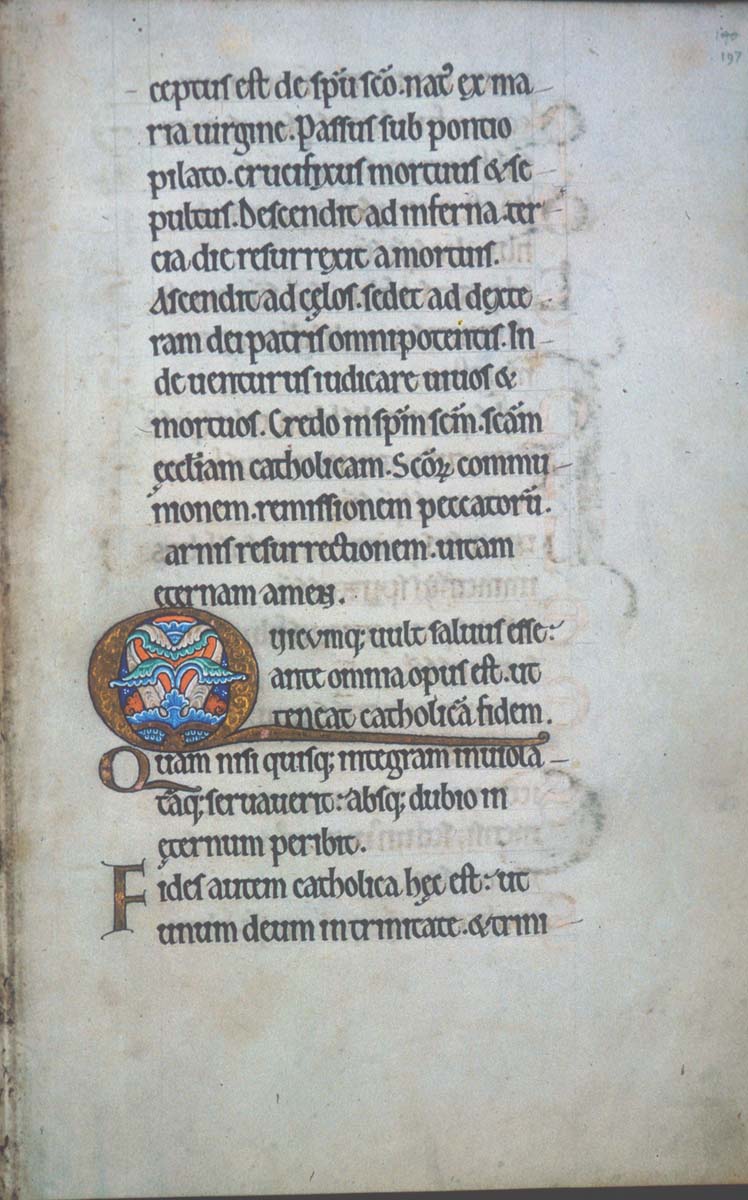 190
197
ceptus est de sp̄u sc̄o. nat᷒ ex ma-
ria uirgine. Passus sub pontio
pilato. crucifixus mortuus & se-
pultus. Descendit ad inferna. ter-
cia die resurrexit a mortuis.
Ascendit ad cęlos. sedet ad dexte-
ram dei patris omnipotentis. In-
de uenturus iudicare uiuos &
mortuos. Credo in sp̄m sc̄m. sc̄am
ęccl̄iam catholicam. Sc̄oꝝ commu-
nionem. remissionem peccatorū.
arnis resurrectionem. uitam
ęternam amen.
Quicumq; uult saluus esse:
ante omnia opus est. ut
teneat catholicā fidem.
Quam nisi quisq; integram inuiola-
tāq; seruauerit: absq; dubio in
ęternum peribit.
Fides autem catholica hęc est: ut
unum deum in trinitate. & trini-